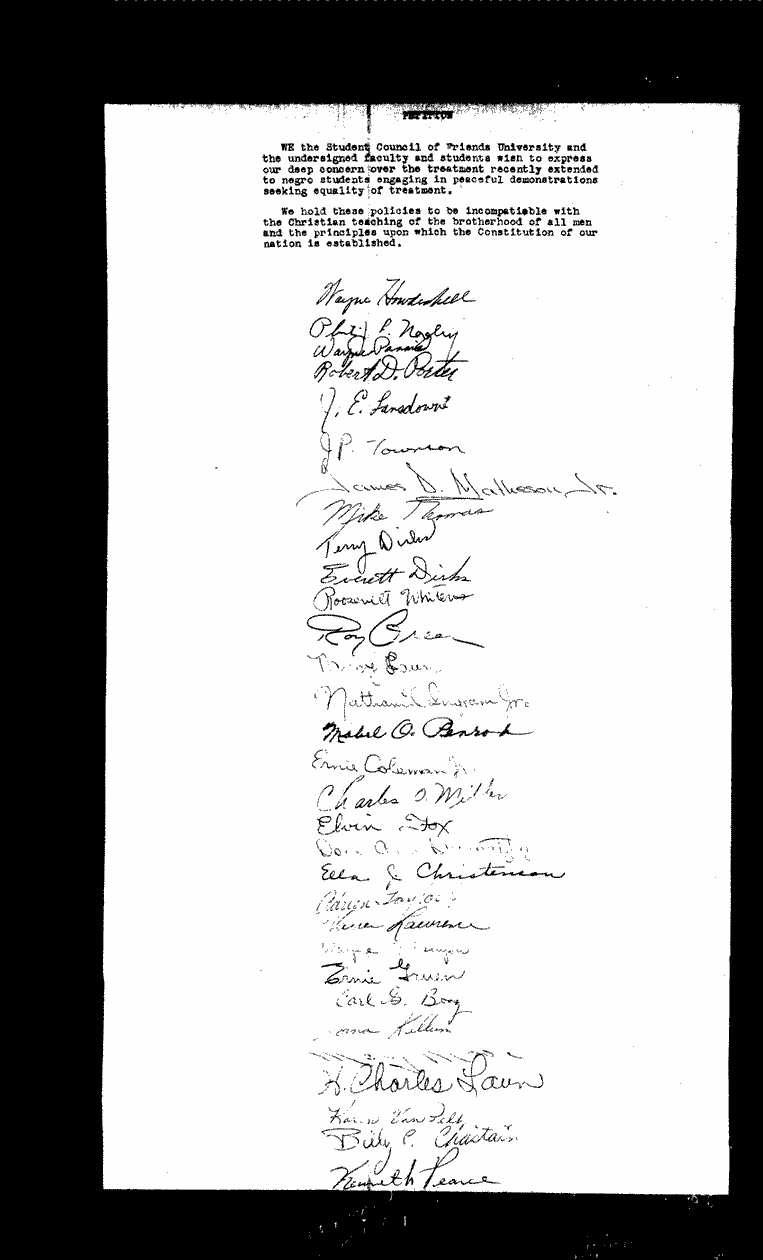 PETITION
WE the Student Council of Friends University and
the undersigned faculty and students wish to express
our deep concern over the treatment recently extended
to negro students engaging in peaceful demonstrations
seeking equality of treatment.
We hold these policies to be incompatiable with
the Christian teaching of the brotherhood of all men
and the principles upon which the Constitution of our
nation is established.
Wayne
P.
Wayne
Robert D. Porter
J. E. Lansdowne
J P. Townson
James D. Matheson, Jr.
Mike Thomas
Terry Dirks
Everett Dirks
Roosevelt
Roy Green
Jr.
Mabel O. Penrose
Ernie Coleman Jr.
Charles D. Miller
Elvin Fox
Ella J Christenson
Taylor
Lawrence
Wayne
Ernie Gruen
Carl G. Borg
Kellum
H. Charles Laun
Karen Van Pelt
Billy C. Chastain
Kenneth Pearce